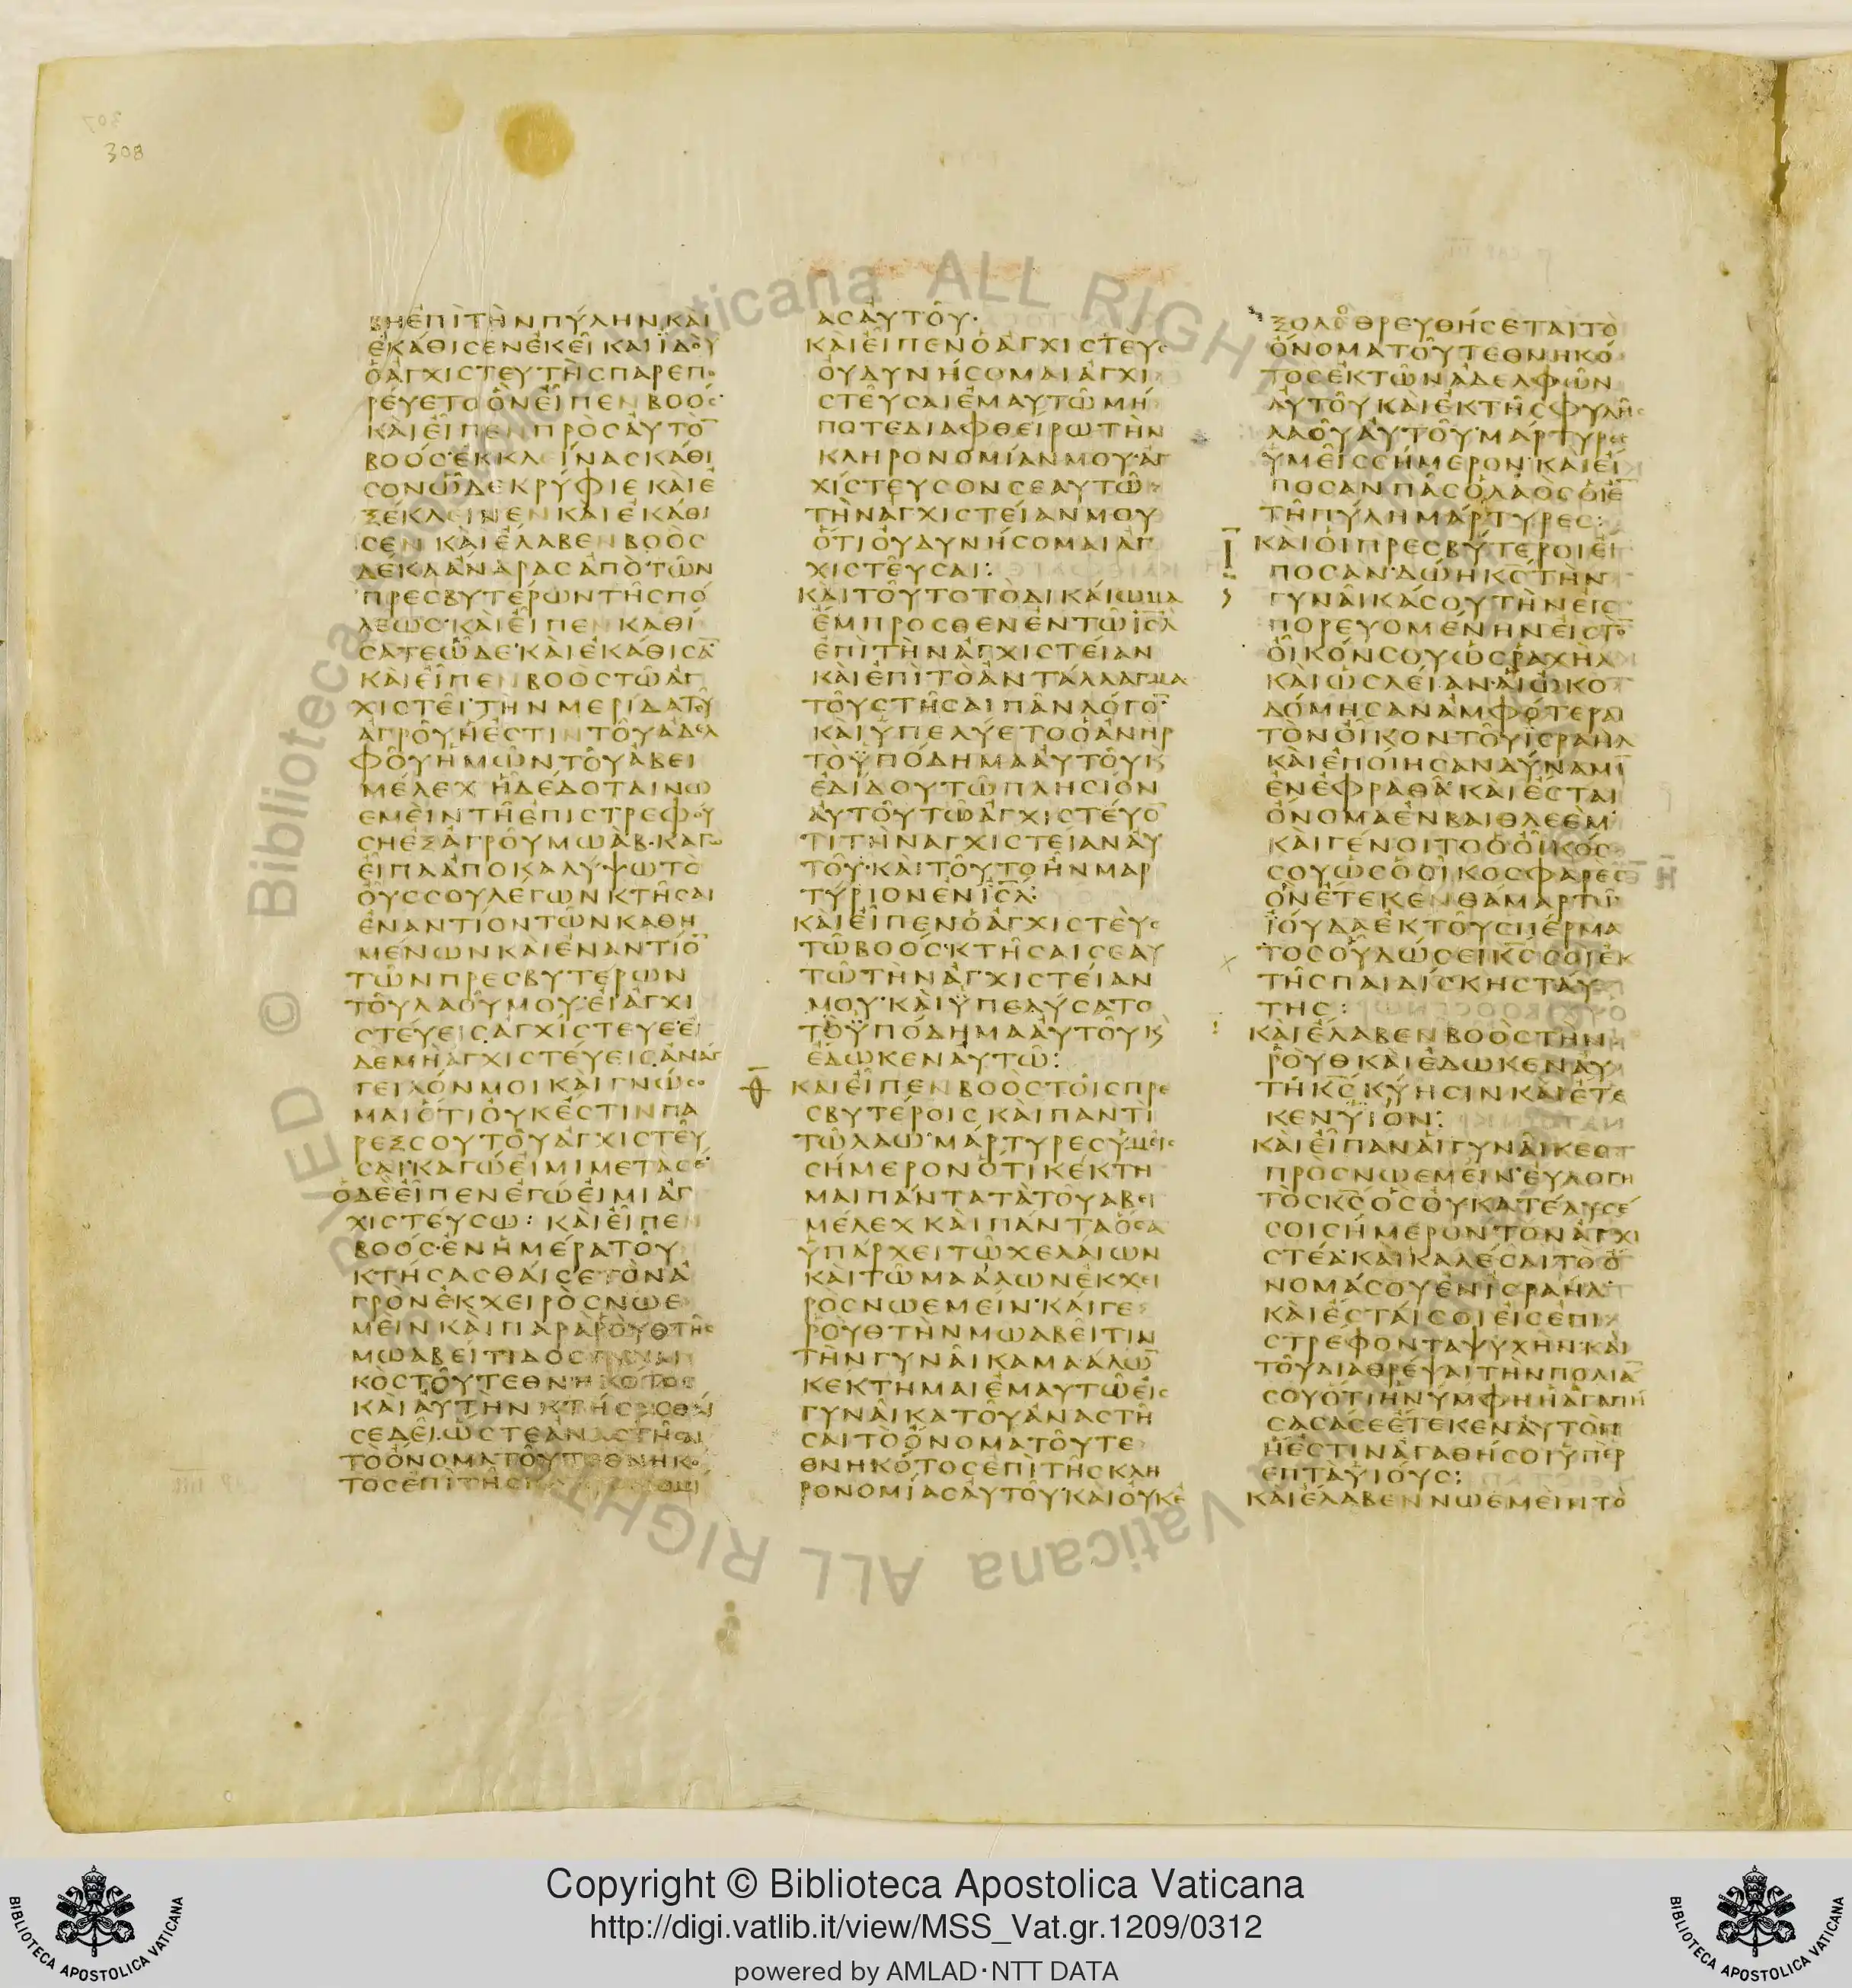 308
ΒΗΕΠΙΤΗΝΠΥΛΗΝΚΑΙ
ΕΚΑΘΙΣΕΝΕΚΕΙΚΑΙΙΔΟΥ
ΟΑΓΧΙΣΤΕΥΤΗΣΠΑΡΕΠΟ
ΡΕΥΕΤΟΟΝΕΙΠΕΝΒΟΟΣ·
ΚΑΙΕΙΠΕΝΠΡΟΣΑΥΤΟ̅
ΒΟΟΣ·ΕΚΚΛΕΙΝΑΣΚΑΘΙ
ΣΟΝΩΔΕΚΡΥΦΙΕΚΑΙΕ
ΞΕΚΛΕΙΝΕΝΚΑΙΕΚΑΘΙ
ΣΕΝ ΚΑΙΕΛΑΒΕΝΒΟΟΣ
ΔΕΚΑΑΝΔΡΑΣΑΠΟΤΩΝ
ΠΡΕΣΒΥΤΕΡΩΝΤΗΣΠΟ
ΛΕΩΣ·ΚΑΙΕΙΠΕΝΚΑΘΙ
ΣΑΤΕΩΔΕ·ΚΑΙΕΚΑΘΙΣΑ̅
ΚΑΙΕΙΠΕΝΒΟΟΣΤΩΑΓ
ΧΙΣΤΕΙ·ΤΗΝΜΕΡΙΔΑΤΟΥ
ΑΓΡΟΥΗΕΣΤΙΝΤΟΥΑΔΕΛ
ΦΟΥΗΜΩΝΤΟΥΑΒΕΙ
ΜΕΛΕΧ ΗΔΕΔΟΤΑΙΝΩ
ΕΜΕΙΝΤΗΕΠΙΣΤΡΕΦΟΥ
ΣΗΕΞΑΓΡΟΥΜΩΑΒ·ΚΑΓΩ
ΕΙΠΑΑΠΟΚΑΛΥΨΩΤΟ
ΟΥΣΣΟΥΛΕΓΩΝΚΤΗΣΑΙ
ΕΝΑΝΤΙΟΝΤΩΝΚΑΘΗ
ΜΕΝΩΝΚΑΙΕΝΑΝΤΙΟ̅
ΤΩΝΠΡΕΣΒΥΤΕΡΩΝ
ΤΟΥΛΑΟΥΜΟΥ·ΕΙΑΓΧΙ
ΣΤΕΥΕΙΣΑΓΧΙΣΤΕΥΕ·ΕΙ
ΔΕΜΗΑΓΧΙΣΤΕΥΕΙΣΑΝΑΓ
ΓΕΙΛΟΝΜΟΙΚΑΙΓΝΩΣΟ
ΜΑΙΟΤΙΟΥΚΕΣΤΙΝΠΑ
ΡΕΞΣΟΥΤΟΥΑΓΧΙΣΤΕΥ
ΣΑΙ·ΚΑΓΩΕΙΜΙΜΕΤΑΣΕ·
ΟΔΕΕΙΠΕΝΕΓΩΕΙΜΙΑΓ
ΧΙΣΤΕΥΣΩ: ΚΑΙΕΙΠΕΝ
ΒΟΟΣ·ΕΝΗΜΕΡΑΤΟΥ
ΚΤΗΣΑΣΘΑΙΣΕΤΟΝΑ
ΓΡΟΝΕΚΧΕΙΡΟΣΝΩΕ
ΜΕΙΝΚΑΙΠΑΡΑΡΟΥΘΤΗΣ
ΜΩΑΒΕΙΤΙΔΟΣΓΥΝΑΙ
ΚΟΣΤΟΥΤΕΘΝΗΚΟΤΟΣ
ΚΑΙΑΥΤΗΝΚΤΗΣΑΣΘΑΙ
ΣΕΔΕΙ·ΩΣΤΕΑΝΑΣΤΗΣΑΙ
ΤΟΟΝΟΜΑΤΟΥΤΕΘΝΗΚΟ
ΤΟΣΕΠΙΤΗΣΚ
ΑΣΑΥΤΟΥ·
ΚΑΙΕΙΠΕΝΟΑΓΧΙΣΤΕΥΣ
ΟΥΔΥΝΗΣΟΜΑΙΑΓΧΙ
ΣΤΕΥΣΑΙΕΜΑΥΤΩΜΗ
ΠΟΤΕΔΙΑΦΘΕΙΡΩΤΗΝ
ΚΛΗΡΟΝΟΜΙΑΝΜΟΥ·ΑΓ
ΧΙΣΤΕΥΣΟΝΣΕΑΥΤΩ
ΤΗΝΑΓΧΙΣΤΕΙΑΝΜΟΥ
ΟΤΙΟΥΔΥΝΗΣΟΜΑΙΑΓ
ΧΙΣΤΕΥΣΑΙ:
ΚΑΙΤΟΥΤΟΤΟΔΙΚΑΙΩΜΑ
ΕΜΠΡΟΣΘΕΝΕΝΤΩΙ̅Σ̅Λ̅
ΕΠΙΤΗΝΑΓΧΙΣΤΕΙΑΝ
ΚΑΙΕΠΙΤΟΑΝΤΑΛΛΑΓΜΑ
ΤΟΥΣΤΗΣΑΙΠΑΝΛΟΓΟ̅·
ΚΑΙΥΠΕΛΥΕΤΟΟΑΝΗΡ
ΤΟΫΠΟΔΗΜΑΑΥΤΟΥΚ
ΕΔΙΔΟΥΤΩΠΛΗΣΙΟΝ
ΑΥΤΟΥΤΩΑΓΧΙΣΤΕΥΟ̅
ΤΙΤΗΝΑΓΧΙΣΤΕΙΑΝΑΥ
ΤΟΥ·ΚΑΙΤΟΥΤΟΗΝΜΑΡ
ΤΥΡΙΟΝΕΝΙ̅Σ̅Λ̅:
ΚΑΙΕΙΠΕΝΟΑΓΧΙΣΤΕΥΣ
ΤΩΒΟΟΣ·ΚΤΗΣΑΙΣΕΑΥ
ΤΩΤΗΝΑΓΧΙΣΤΕΙΑΝ
ΜΟΥ·ΚΑΙΫΠΕΛΥΣΑΤΟ
ΤΟΫΠΟΔΗΜΑΑΥΤΟΥΚ
ΕΔΩΚΕΝΑΥΤΩ:
Θ̅ ΚΑΙΕΙΠΕΝΒΟΟΣΤΟΙΣΠΡΕ
ΣΒΥΤΕΡΟΙΣΚΑΙΠΑΝΤΙ
ΤΩΛΑΩ·ΜΑΡΤΥΡΕΣΥΜΕΙΣ
ΣΗΜΕΡΟΝΟΤΙΚΕΚΤΗ
ΜΑΙΠΑΝΤΑΤΑΤΟΥΑΒΕΙ
ΜΕΛΕΧΚΑΙΠΑΝΤΑΟΣΑ
ΥΠΑΡΧΕΙΤΩΧΕΛΑΙΩΝ
ΚΑΙΤΩΜΑΑΛΩΝΕΚΧΕΙ
ΡΟΣΝΩΕΜΕΙΝ·ΚΑΙΓΕ
ΡΟΥΘΤΗΝΜΩΑΒΕΙΤΙΝ
ΤΗΝΓΥΝΑΙΚΑΜΑΑΛΩ̅
ΚΕΚΤΗΜΑΙΕΜΑΥΤΩΕΙΣ
ΓΥΝΑΙΚΑΤΟΥΑΝΑΣΤΗ
ΣΑΙΤΟΟΝΟΜΑΤΟΥΤΕ
ΘΝΗΚΟΤΟΣΕΠΙΤΗΣΚΛΗ
ΡΟΝΟΜΙΑΣΑΥΤΟΥ·ΚΑΙΟΥΚΕ
ΞΟΛΕΘΡΕΥΘΗΣΕΤΑΙΤΟ
ΟΝΟΜΑΤΟΥΤΕΘΝΗΚΟ
ΤΟΣΕΚΤΩΝΑΔΕΛΦΩΝ
ΑΥΤΟΥΚΑΙΕΚΤΗΣΦΥΛΗΣ
ΛΑΟΥΑΥΤΟΥ·ΜΑΡΤΥΡΕΣ
ΥΜΕΙΣΣΗΜΕΡΟΝ·ΚΑΙΕΙ
ΠΟΣΑΝΠΑΣΟΛΑΟΣΟΙΕ̅
ΤΗΠΥΛΗΜΑΡΤΥΡΕΣ:
Ι̅ ΚΑΙΟΙΠΡΕΣΒΥΤΕΡΟΙΕΙ
ΠΟΣΑΝ·ΔΩΗΚ̅Σ̅ΤΗΝ
ΓΥΝΑΙΚΑΣΟΥΤΗΝΕΙΣ
ΠΟΡΕΥΟΜΕΝΗΝΕΙΣΤΟ̅
ΟΙΚΟΝΣΟΥΩΣΡΑΧΗΛ
ΚΑΙΩΣΛΕΙΑΝ·ΑΙΩΚΟ
ΔΟΜΗΣΑΝΑΜΦΟΤΕΡΑΙ
ΤΟΝΟΙΚΟΝΤΟΥΙΣΡΑΗΛ
ΚΑΙΕΠΟΙΗΣΑΝΔΥΝΑΜΙ̅
ΕΝΕΦΡΑΘΑ·ΚΑΙΕΣΤΑΙ
ΟΝΟΜΑΕΝΒΑΙΘΛΕΕΜ·
ΚΑΙΓΕΝΟΙΤΟΟΟΙΚΟΣ
ΣΟΥΩΣΟΟΙΚΟΣΦΑΡΕΣ
ΟΝΕΤΕΚΕΝΘΑΜΑΡΤΩ
ΙΟΥΔΑΕΚΤΟΥΣΠΕΡΜΑ
ΤΟΣΟΥΔΩΣΕΙΚ̅Σ̅ΣΟΙΕΚ
ΤΗΣΠΑΙΔΙΣΚΗΣΤΑΥ
ΤΗΣ:
ΚΑΙΕΛΑΒΕΝΒΟΟΣΤΗΝ
ΡΟΥΘΚΑΙΕΔΩΚΕΝΑΥ
ΤΗΚ̅Σ̅ΚΥΗΣΙΝΚΑΙΕΤΕ
ΚΕΝΫΙΟΝ:
ΚΑΙΕΙΠΑΝΑΙΓΥΝΑΙΚΕΣ
ΠΡΟΣΝΩΕΜΕΙΝ·ΕΥΛΟΓΗ
ΤΟΣΚ̅Σ̅ΟΣΟΥΚΑΤΕΛΥΣΕ
ΣΟΙΣΗΜΕΡΟΝΤΟΝΑΓΧΙ
ΣΤΕΑ·ΚΑΙΚΑΛΕΣΑΙΤΟΟ
ΝΟΜΑΣΟΥΕΝΙΣΡΑΗΛ·
ΚΑΙΕΣΤΑΙΣΟΙΕΙΣΕΠΙ
ΣΤΡΕΦΟΝΤΑΨΥΧΗΝ·ΚΑΙ
ΤΟΥΔΙΑΘΡΕΨΑΙΤΗΝΠΟΛΙΑ̅
ΣΟΥΟΤΙΗΝΥΜΦΗΗΑΓΑΠΗ
ΣΑΣΑΣΕΕΤΕΚΕΝΑΥΤΟΝ
ΗΕΣΤΙΝΑΓΑΘΗΣΟΙΫΠΕΡ
ΕΠΤΑΫΙΟΥΣ:
ΚΑΙΕΛΑΒΕΝΝΩΕΜΕΙΝΤΟ
Copyright © Biblioteca Apostolica Vaticana
http://digi.vatlib.it/view/MSS_Vat.gr.1209/0312
powered by AMLAD·NTT DATA
BIBLIOTECA APOSTOLICA VATICANA
BIBLIOTECA APOSTOLICA VATICANA